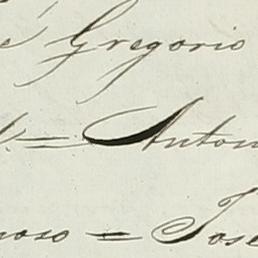 é Gregorio
= Anton
oso = José